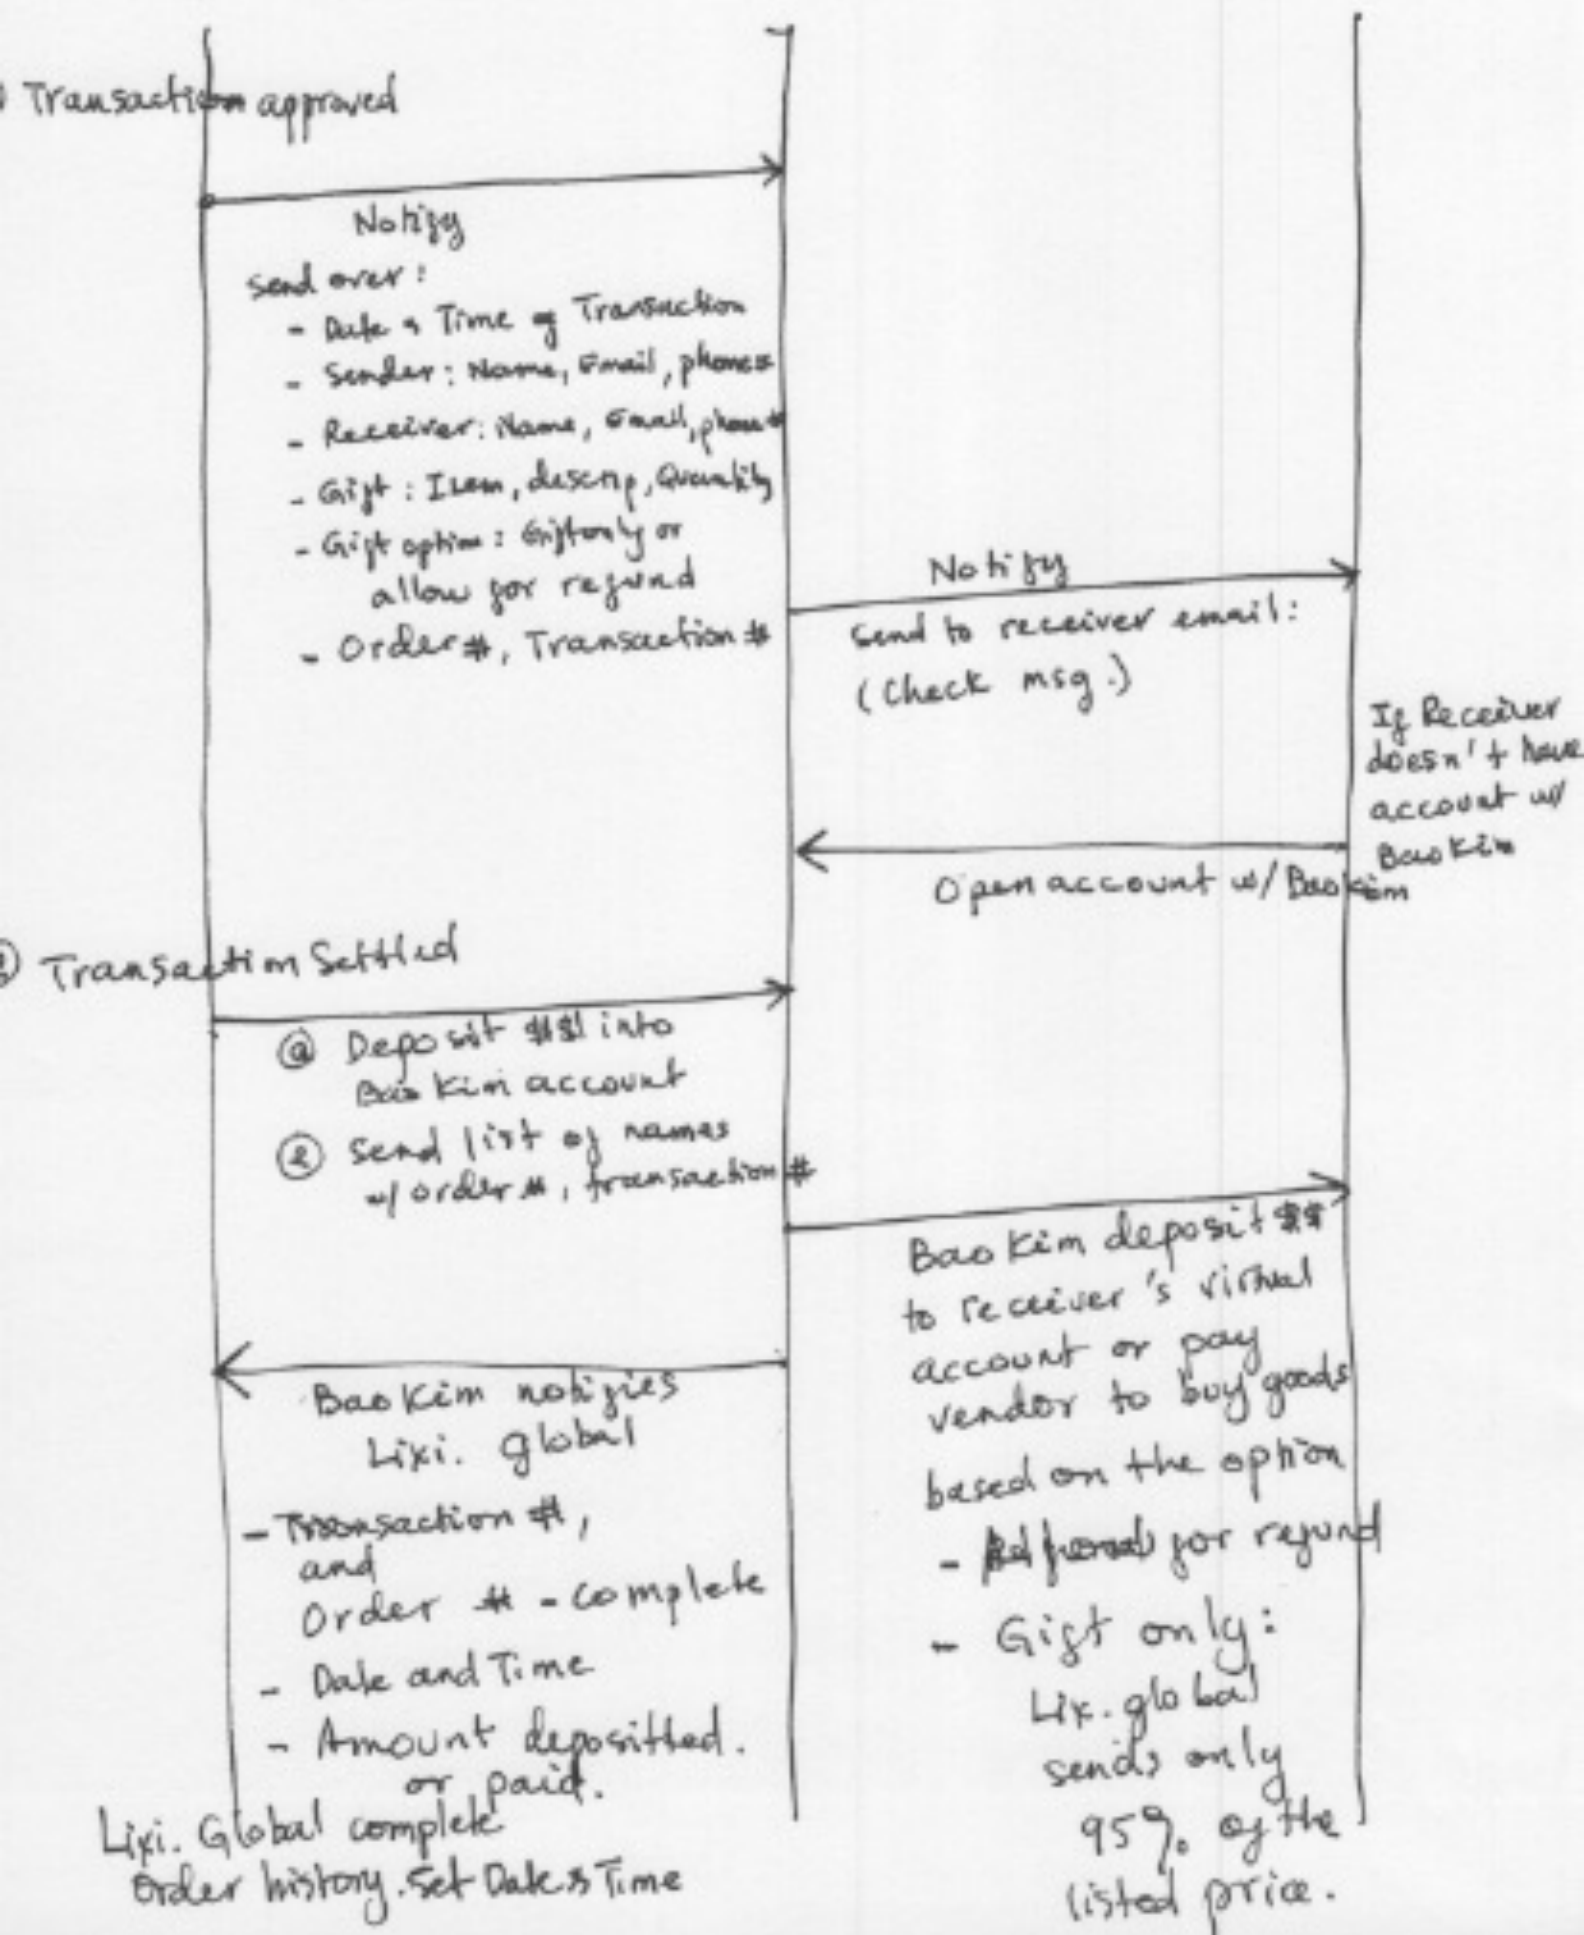 Transaction approved
Notify
send over:
- Date & Time of Transaction
- Sender: Name, Email, phone#
- Receiver: Name, Email, phone#
- Gift: Item, descrip, Quantity
- Gift option: Gift only or
allow for refund
- Order #, Transaction #
Notify
Send to receiver email:
(Check msg.)
If Receiver
doesn't have
account w/
BaoKim
Open account w/ BaoKim
Transaction Settled
Deposit $$ into
BaoKim account
② Send list of names
w/ order #, transaction #
BaoKim deposit $$
to receiver's virtual
account or pay
vendor to buy goods
based on the option
- for refund
- Gift only:
Lix. global
sends only
95% of the
listed price.
BaoKim notifies
Lixi. global
- Transaction #,
and
Order # - complete
- Date and Time
- Amount depositted.
or paid.
Lixi. Global complete
order history. Set Date & Time